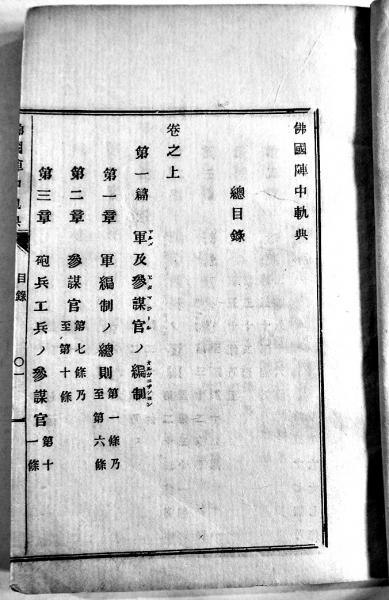 佛國陣中軌典
總目錄
卷之上
第一篇 軍及參謀官ノ編制
第一章 軍編制ノ總則 第一條乃至第六條
第二章 參謀官 第七條乃至第十條
第三章 砲兵工兵ノ參謀官 第十一條
佛國陣中軌典 目錄 〇一